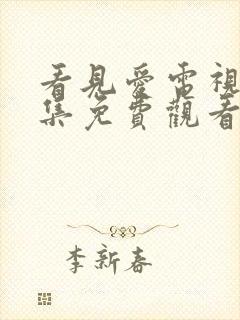 看見愛電視
集免費觀看
李新春